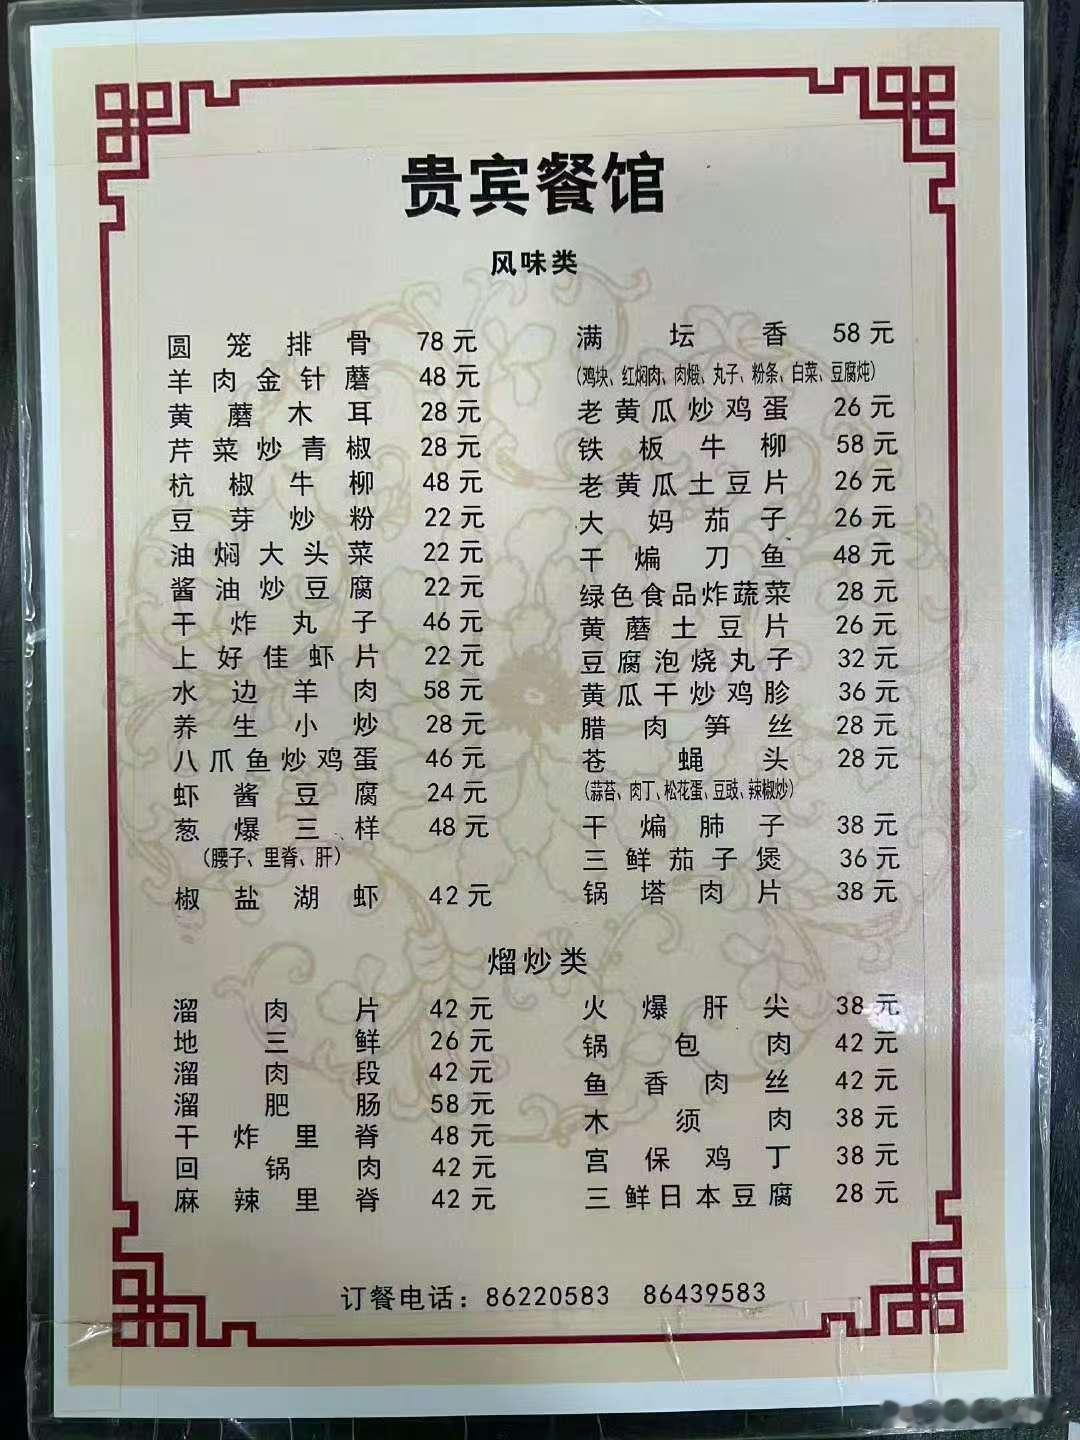 贵宾餐馆
风味类
圆笼排骨 78元
羊肉金针蘑 48元
黄蘑木耳 28元
芹菜炒青椒 28元
杭椒牛柳 48元
豆芽炒粉 22元
油焖大头菜 22元
酱油炒豆腐 22元
干炸丸子 46元
上好佳虾片 22元
水边羊肉 58元
养生小炒 28元
八爪鱼炒鸡蛋 46元
虾酱豆腐 24元
葱爆三样 48元
(腰子、里脊、肝)
椒盐湖虾 42元
满坛香 58元
(鸡块、红焖肉、肉煅、丸子、粉条、白菜、豆腐炖)
老黄瓜炒鸡蛋 26元
铁板牛柳 58元
老黄瓜土豆片 26元
大妈茄子 26元
干煸刀鱼 48元
绿色食品炸蔬菜 28元
黄蘑土豆片 26元
豆腐泡烧丸子 32元
黄瓜干炒鸡胗 36元
腊肉笋丝 28元
苍蝇头 28元
(蒜苔、肉丁、松花蛋、豆豉、辣椒炒)
干煸肺子 38元
三鲜茄子煲 36元
锅塔肉片 38元
熘炒类
溜肉片 42元
地三鲜 26元
溜肉段 42元
溜肥肠 58元
干炸里脊 48元
回锅肉 42元
麻辣里脊 42元
火爆肝尖 38元
锅包肉 42元
鱼香肉丝 42元
木须肉 38元
宫保鸡丁 38元
三鲜日本豆腐 28元
订餐电话：86220583 86439583